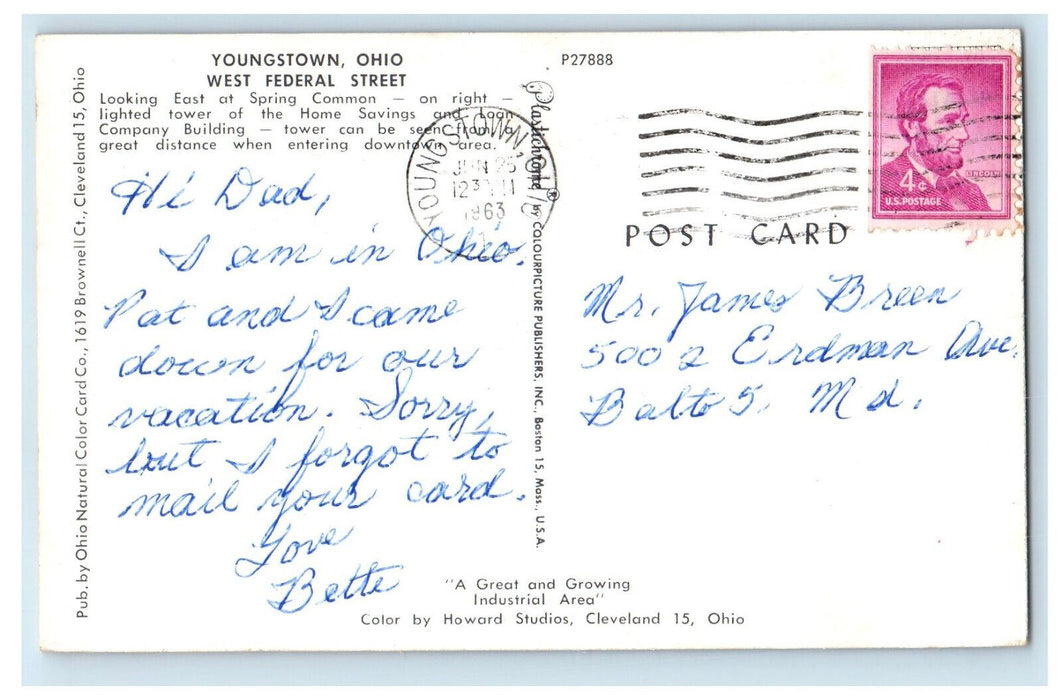 YOUNGSTOWN, OHIO
WEST FEDERAL STREET
Looking East at Spring Common — on right —
lighted tower of the Home Savings and Loan
Company Building — tower can be seen from a
great distance when entering downtown area.
Hi Dad,
I am in Ohio.
Pat and I came
down for our
vacation. Sorry,
but I forgot to
mail your card.
Love
Bette
"A Great and Growing
Industrial Area"
Color by Howard Studios, Cleveland 15, Ohio
Pub. by Ohio Natural Color Card Co., 1619 Brownell Ct., Cleveland 15, Ohio
Plastichrome ® by COLOURPICTURE PUBLISHERS, INC., Boston 15, Mass., U.S.A.
P27888
YOUNGSTOWN, OHIO
JUN 25
1963
4¢
LINCOLN
U.S. POSTAGE
POST CARD
Mr. James Breen
5002 Erdman Ave.
Balto 5, Md.